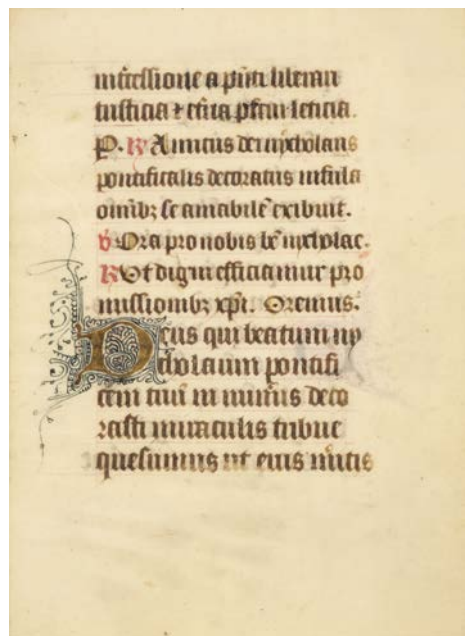 intercessione a pn̄ti liberari
tristicia ⁊ et̄na pfrui leticia.
P. R Amicus dei nycholaus
pontificalis decoratus infula
omībꝫ se amabilē exibuit.
V Ora pro nobis bē nycholae.
R Ut digni efficiamur pro
missionibꝫ xp̄i. Oremus.
Deus qui beatum ny
cholaum pontifi
cem tuū in numis deco
rasti miraculis tribue
quesumus ut eius m̄itis